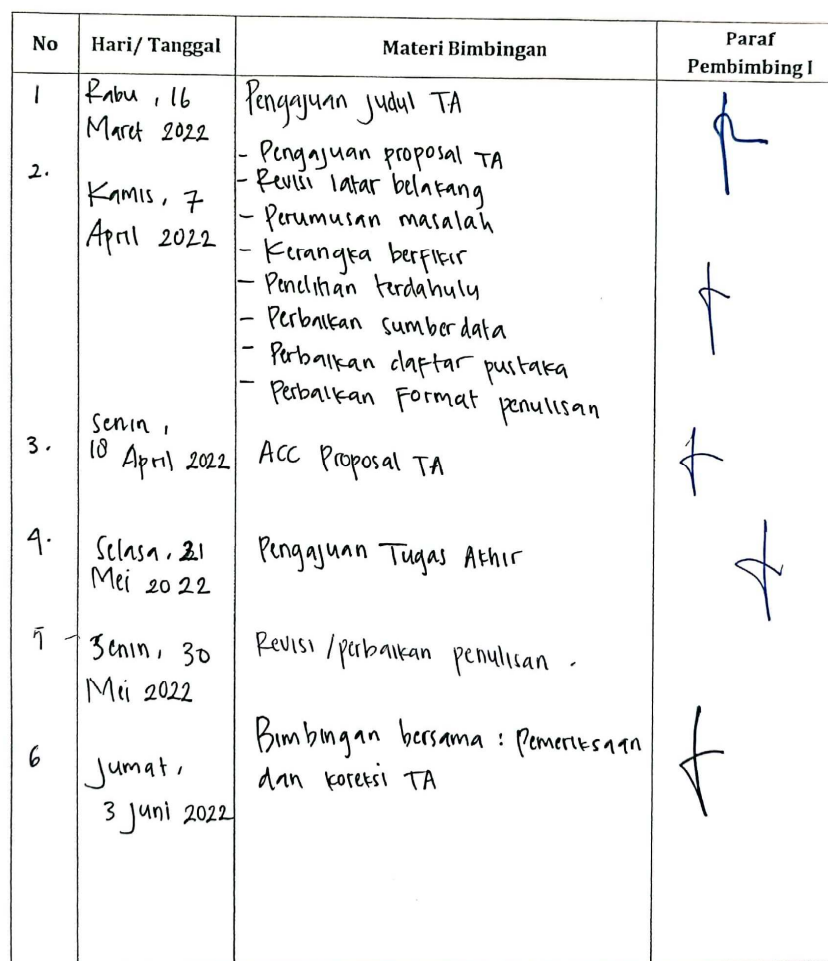 No Hari/ Tanggal Materi Bimbingan Paraf Pembimbing I
1 Rabu, 16 Pengajuan judul TA
Maret 2022
2. - Pengajuan proposal TA
- Revisi latar belakang
Kamis, 7 - Perumusan masalah
April 2022 - Kerangka berfikir
- Penelitian terdahulu
- Perbaikan sumber data
- Perbaikan daftar pustaka
- Perbaikan Format penulisan
Senin,
3. 18 April 2022 ACC Proposal TA
4. Selasa, 31 Pengajuan Tugas Akhir
Mei 2022
5 Senin, 30 Revisi /perbaikan penulisan.
Mei 2022
6 Jumat, Bimbingan bersama : Pemeriksaan
3 Juni 2022 dan koreksi TA